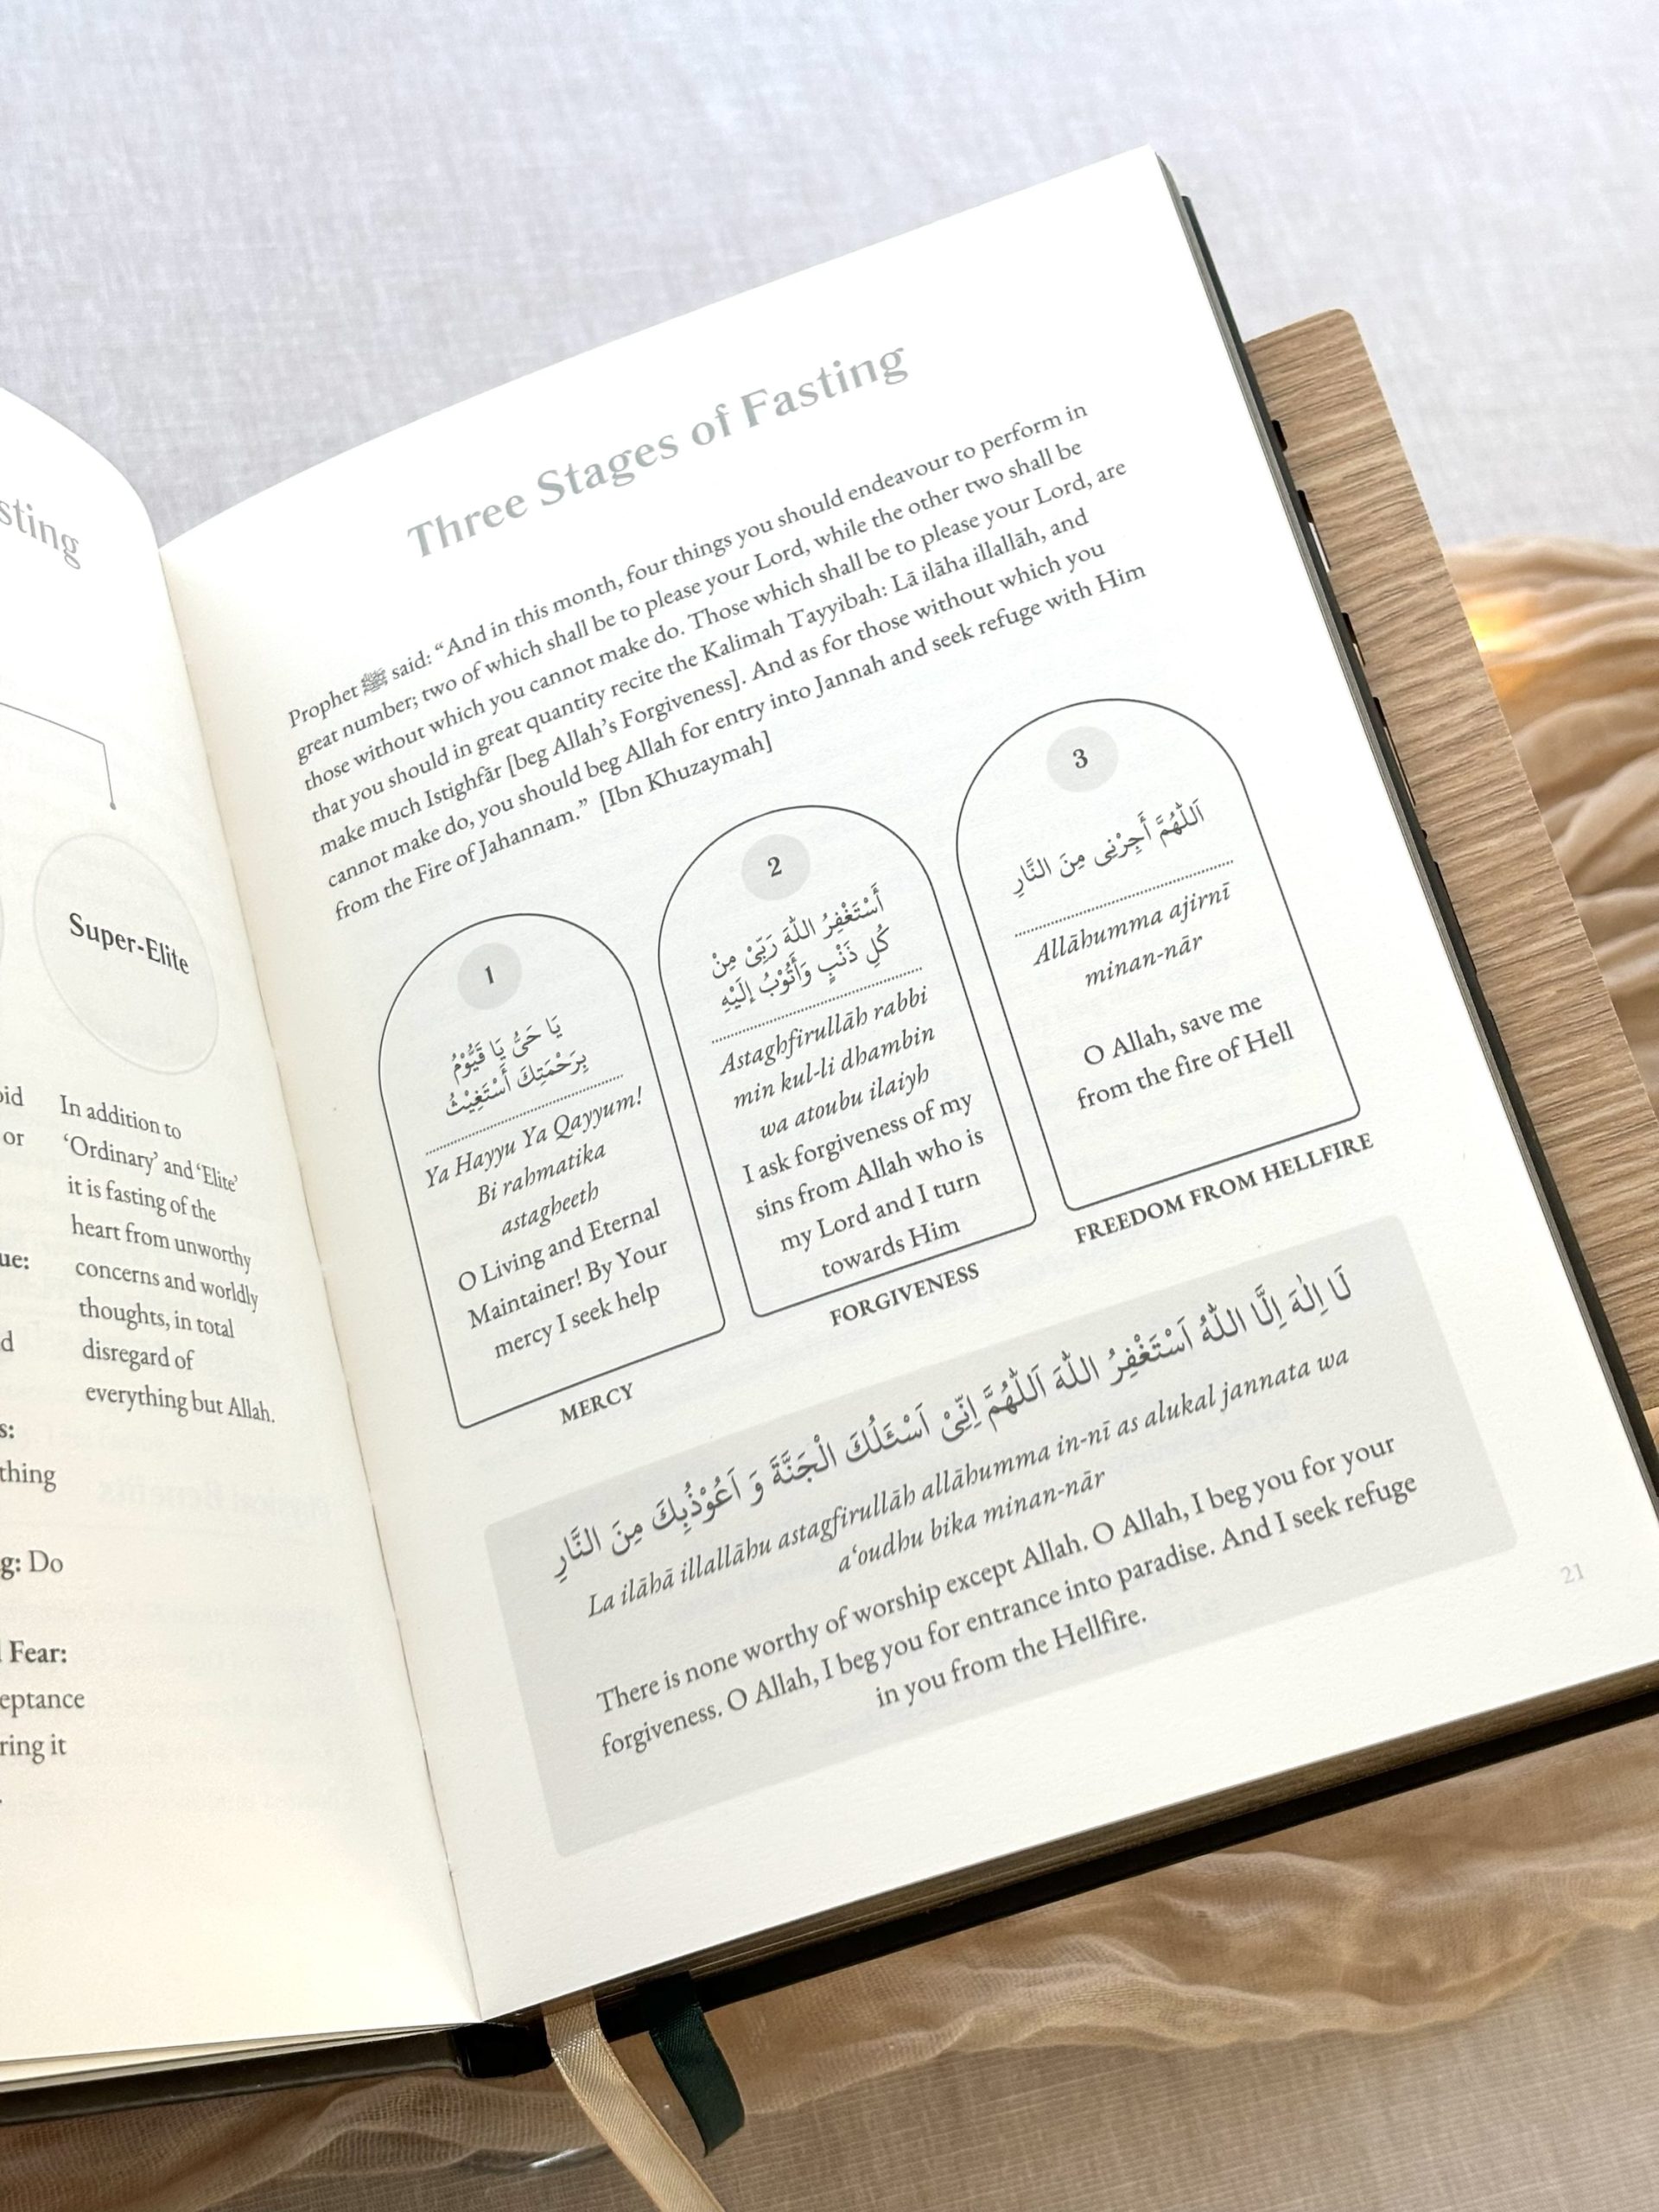 sting
Super-Elite
oid
or
ue:
d
s:
thing
g: Do
Fear:
eptance
ring it
In addition to
‘Ordinary’ and ‘Elite’
it is fasting of the
heart from unworthy
concerns and worldly
thoughts, in total
disregard of
everything but Allah.
Three Stages of Fasting
Prophet ﷺ said: “And in this month, four things you should endeavour to perform in
great number; two of which shall be to please your Lord, while the other two shall be
those without which you cannot make do. Those which shall be to please your Lord, are
that you should in great quantity recite the Kalimah Tayyibah: Lā ilāha illallāh, and
make much Istighfār [beg Allah’s Forgiveness]. And as for those without which you
cannot make do, you should beg Allah for entry into Jannah and seek refuge with Him
from the Fire of Jahannam.” [Ibn Khuzaymah]
1
يَا حَيُّ يَا قَيُّوْمُ
بِرَحْمَتِكَ أَسْتَغِيْثُ
Ya Hayyu Ya Qayyum!
Bi rahmatika
astagheeth
O Living and Eternal
Maintainer! By Your
mercy I seek help
MERCY
2
أَسْتَغْفِرُ اللّٰهَ رَبِّیْ مِنْ
كُلِ ذَنْبٍ وَأَتُوْبُ إِلَيْهِ
Astaghfirullāh rabbi
min kul-li dhambin
wa atoubu ilaiyh
I ask forgiveness of my
sins from Allah who is
my Lord and I turn
towards Him
FORGIVENESS
3
اَللّٰهُمَّ أَجِرْنِى مِنَ النَّارِ
Allāhumma ajirnī
minan-nār
O Allah, save me
from the fire of Hell
FREEDOM FROM HELLFIRE
لَا اِلٰهَ اِلَّا اللّٰهُ اَسْتَغْفِرُ اللّٰهَ اَللّٰهُمَّ اِنِّىْ اَسْئَلُكَ الْجَنَّةَ وَ اَعُوْذُبِكَ مِنَ النَّارِ
La ilāhā illallāhu astagfirullāh allāhumma in-nī as alukal jannata wa
a‘oudhu bika minan-nār
There is none worthy of worship except Allah. O Allah, I beg you for your
forgiveness. O Allah, I beg you for entrance into paradise. And I seek refuge
in you from the Hellfire.
21